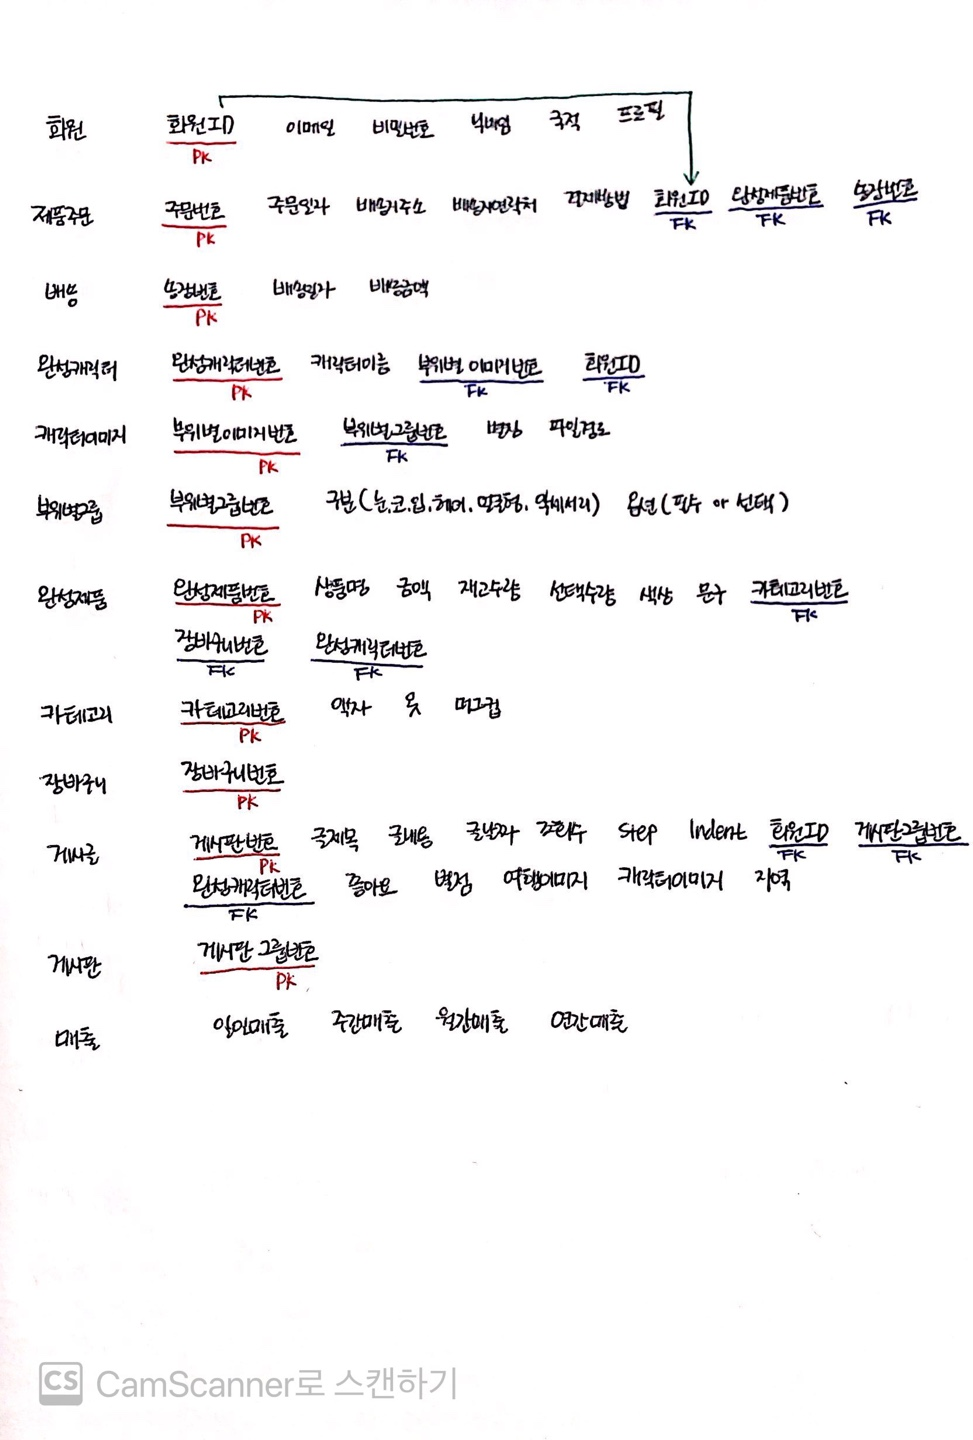 회원 회원ID 이메일 비밀번호 닉네임 국적 프로필
PK
제품주문 주문번호 주문일자 배송지주소 배송지연락처 결제방법 회원ID 완성제품번호 송장번호
PK FK FK FK
배송 송장번호 배송일자 배송금액
PK
완성캐릭터 완성캐릭터번호 캐릭터이름 부위별 이미지번호 회원ID
PK FK FK
캐릭터이미지 부위별이미지번호 부위별그룹번호 명칭 파일경로
PK FK
부위별그룹 부위별그룹번호 구분(눈.코.입.헤어.얼굴형.악세서리) 옵션(필수 or 선택)
PK
완성제품 완성제품번호 상품명 금액 재고수량 선택수량 색상 문구 카테고리번호
PK FK
장바구니번호 완성캐릭터번호
FK FK
카테고리 카테고리번호 액자 옷 머그컵
PK
장바구니 장바구니번호
PK
게시글 게시판번호 글제목 글내용 글날짜 조회수 Step Indent 회원ID 게시판그룹번호
PK FK FK
완성캐릭터번호 좋아요 별점 여행이미지 캐릭터이미지 지역
FK
게시판 게시판 그룹번호
PK
매출 일일매출 주간매출 월간매출 연간매출
CS CamScanner로 스캔하기